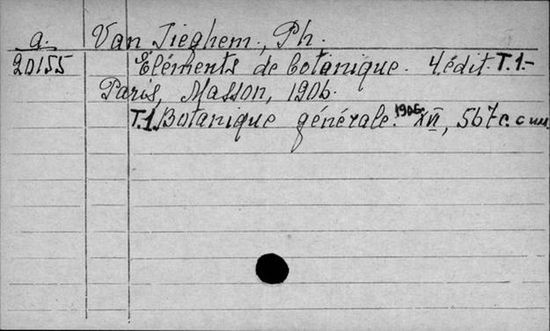 a. Van Tieghem, Ph.
20155 Éléments de botanique. 4.édit. T.1.-
Paris, Masson, 1906.
T.1. Botanique générale. 1906. XVI, 567c. с илл.